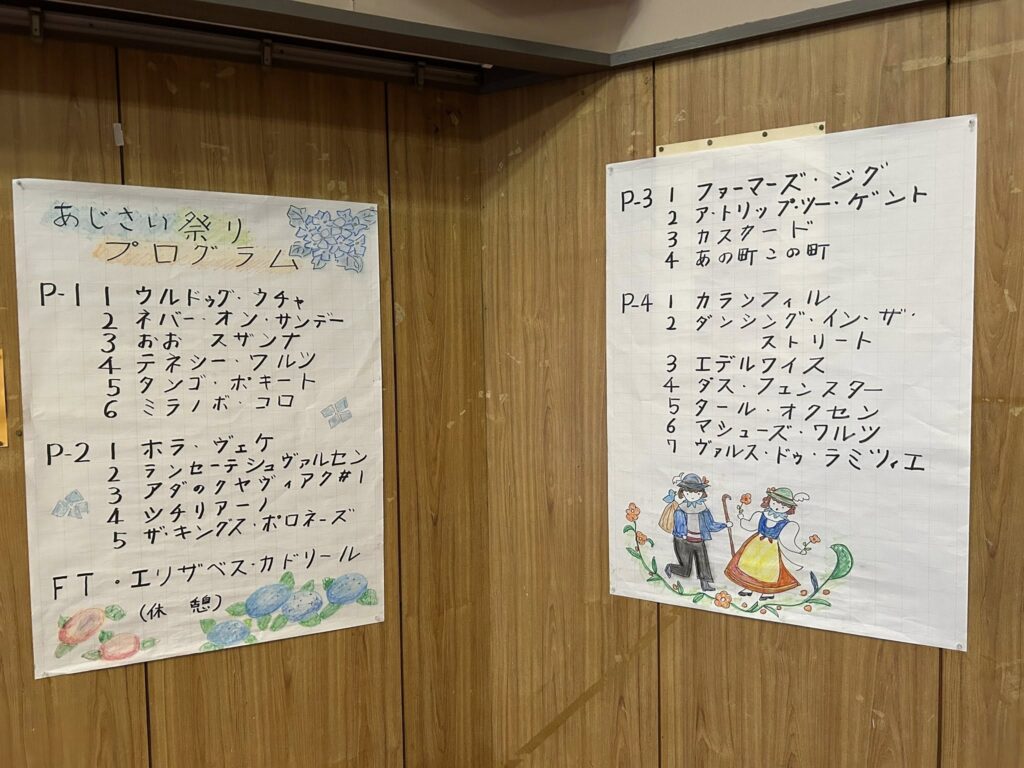 あじさい祭り
プログラム
P-1 1 ウルドゥグ・ウチャ
2 ネバー・オン・サンデー
3 おお スザンナ
4 テネシー・ワルツ
5 タンゴ・ポキート
6 ミラノボ・コロ
P-2 1 ホラ・ヴェケ
2 ランセーテシュヴァルセン
3 アダのクヤヴィアク#1
4 シチリアーノ
5 ザ・キングス・ポロネーズ
FT・エリザベス・カドリール
(休憩)
P-3 1 ファーマーズ・ジグ
2 ア・トリップ・ツー・ゲント
3 カスケード
4 あの町この町
P-4 1 カランフィル
2 ダンシング・イン・ザ・
ストリート
3 エデルワイス
4 ダス・フェンスター
5 タール・オクセン
6 マシューズ・ワルツ
7 ヴァルス・ドゥ・ラミツィエ